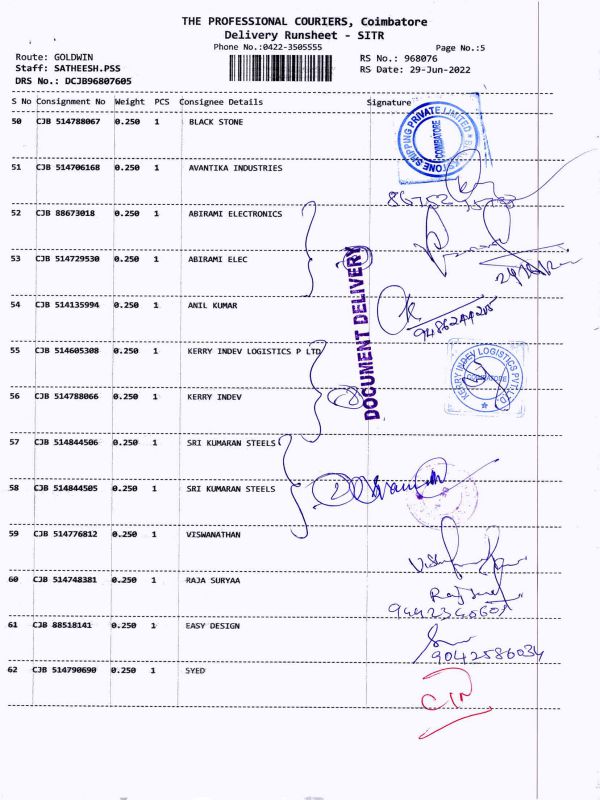 THE PROFESSIONAL COURIERS, Coimbatore
Delivery Runsheet - SITR
Phone No.:0422-3505555
Page No.:5
Route: GOLDWIN
RS No.: 968076
Staff: SATHEESH.PSS
RS Date: 29-Jun-2022
DRS No.: DCJB96807605
S No Consignment No Weight PCS Consignee Details Signature
50 CJB 514788067 0.250 1 BLACK STONE
51 CJB 514706168 0.250 1 AVANTIKA INDUSTRIES
52 CJB 88673018 0.250 1 ABIRAMI ELECTRONICS
53 CJB 514729530 0.250 1 ABIRAMI ELEC
54 CJB 514135994 0.250 1 ANIL KUMAR
55 CJB 514605308 0.250 1 KERRY INDEV LOGISTICS P LTD
56 CJB 514788066 0.250 1 KERRY INDEV
57 CJB 514844506 0.250 1 SRI KUMARAN STEELS
58 CJB 514844505 0.250 1 SRI KUMARAN STEELS
59 CJB 514776812 0.250 1 VISWANATHAN
60 CJB 514748381 0.250 1 RAJA SURYAA
61 CJB 88518141 0.250 1 EASY DESIGN
9042586034
62 CJB 514790690 0.250 1 SYED
DOCUMENT DELIVERY
SHIPPING PRIVATE LIMITED
COIMBATORE
KERRY INDEV LOGISTICS PVT. LTD.
COIMBATORE